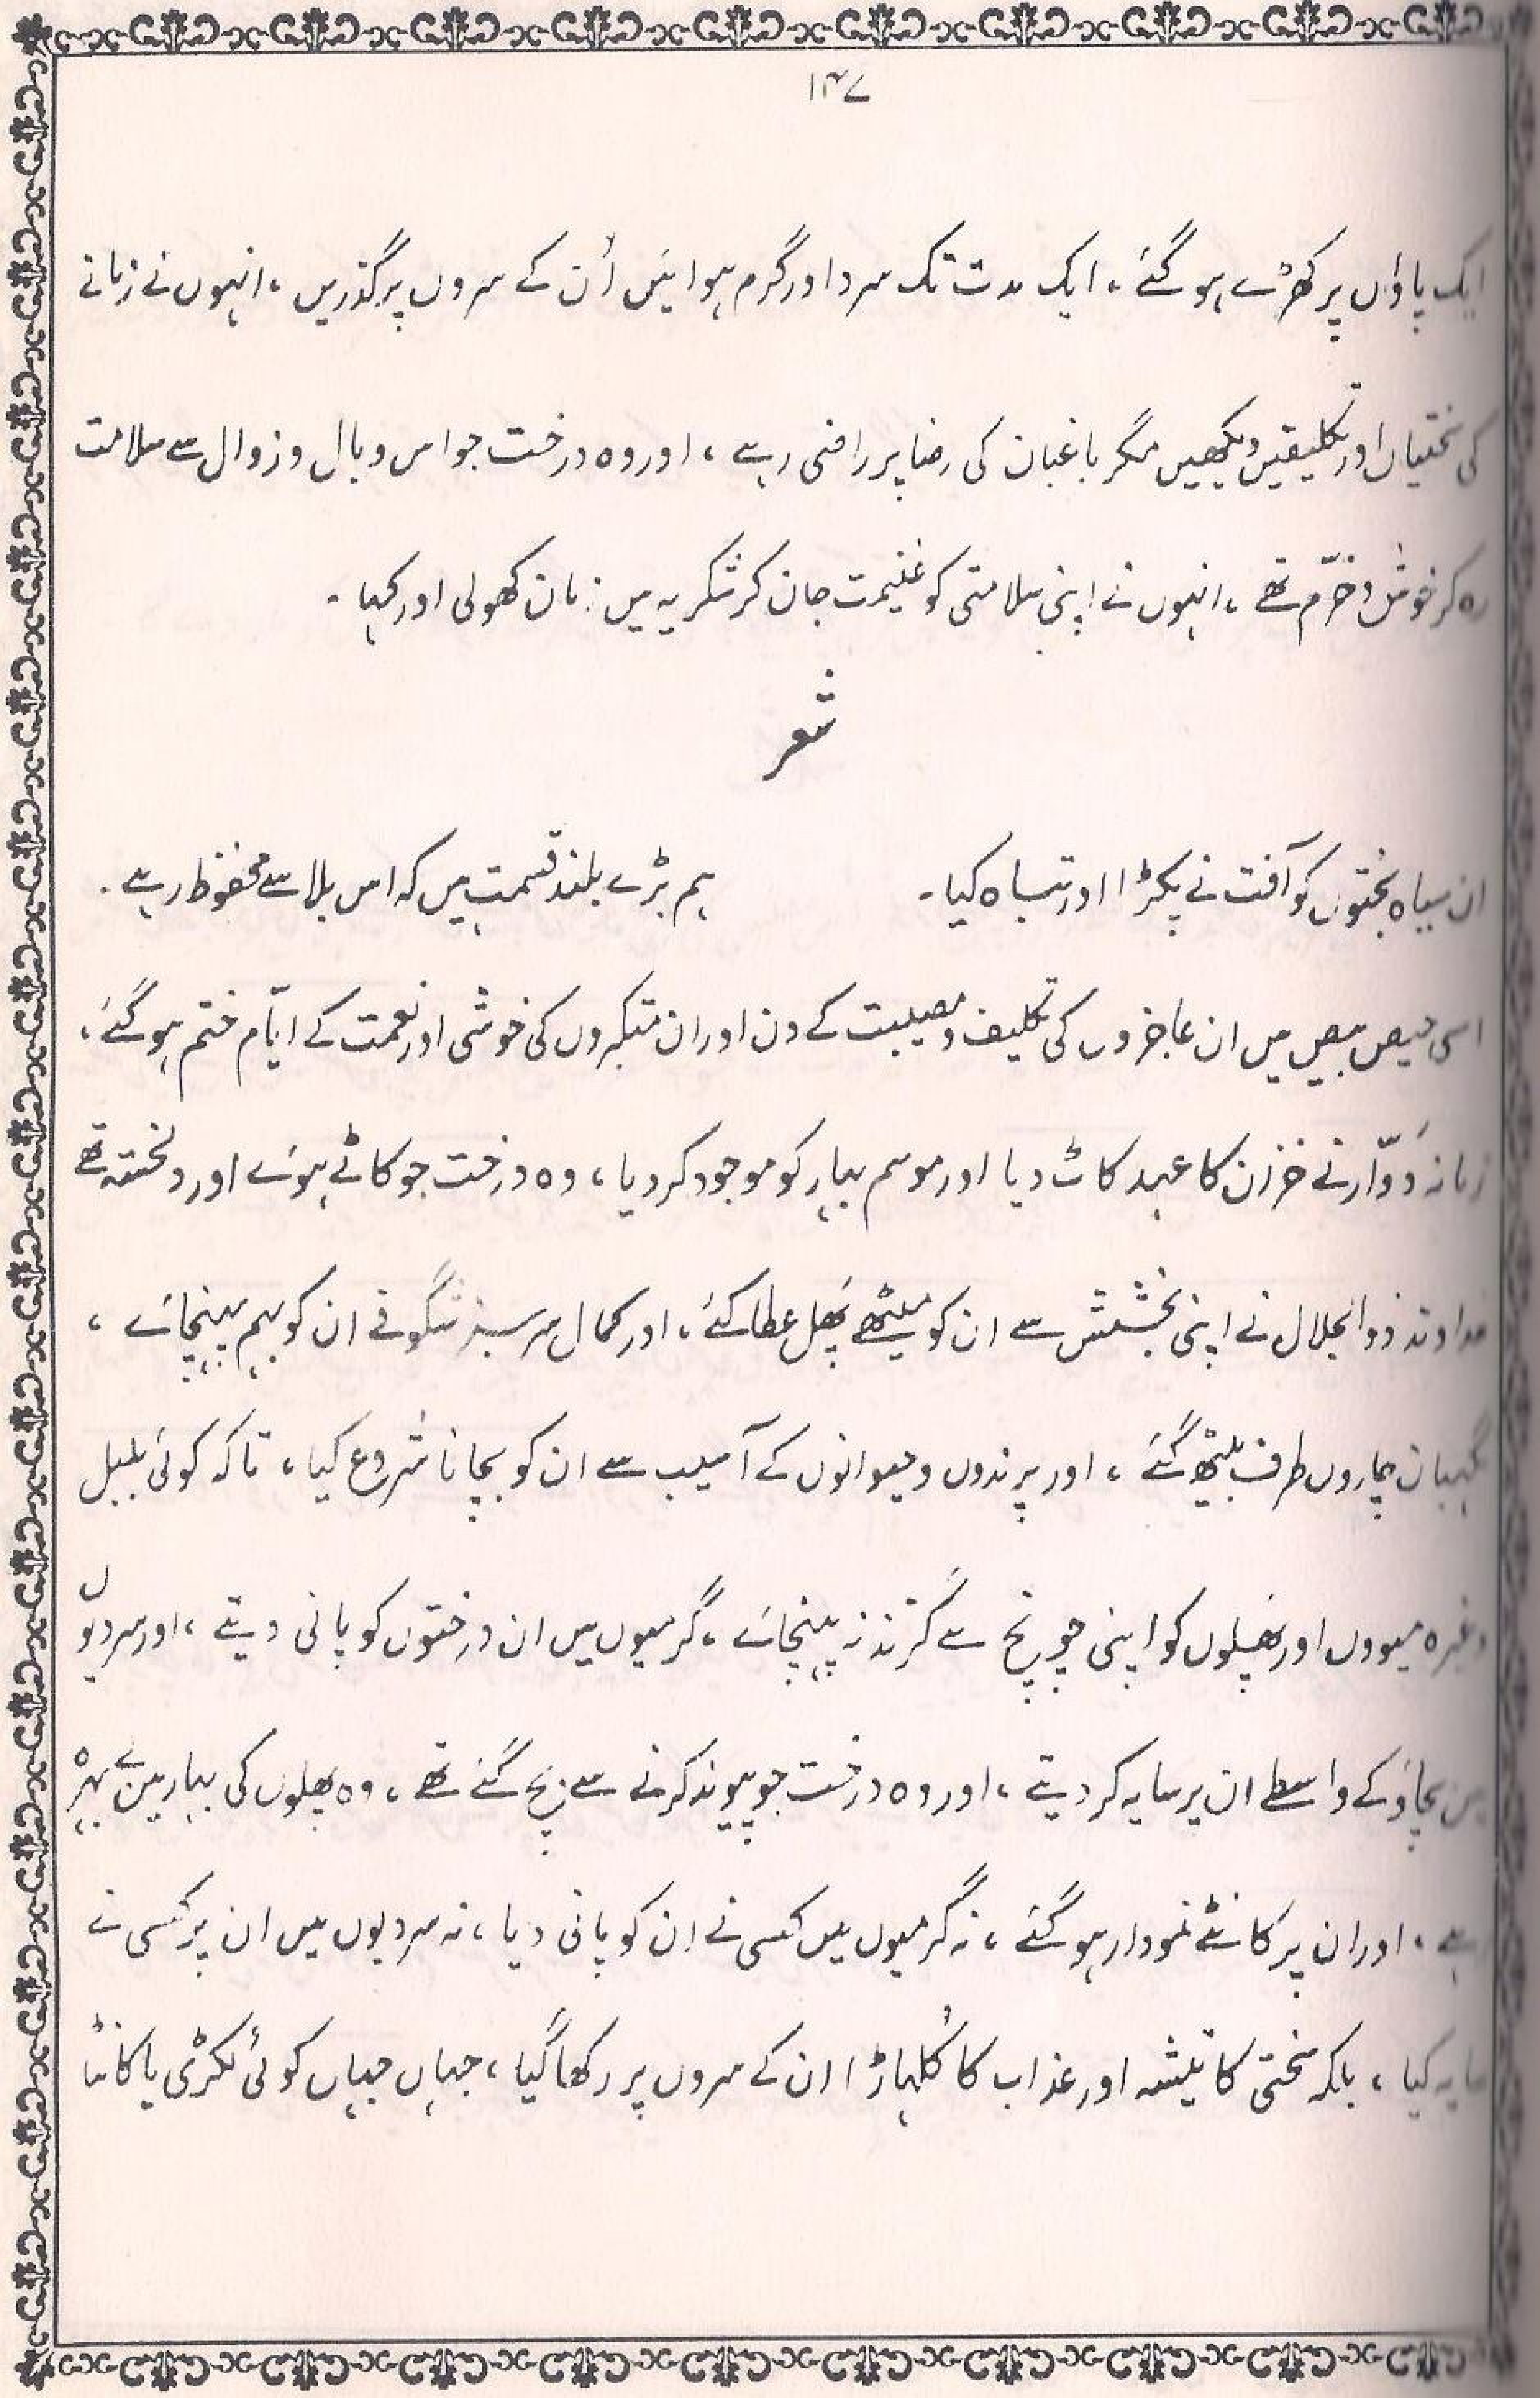 ۱۴۷
ایک پاؤں پر کھڑے ہو گئے ، ایک مدت تک سرد اور گرم ہوائیں اُن کے سروں پر گذریں ، انہوں نے زمانے
کی سختیاں اور تکلیفیں دیکھیں مگر باغبان کی رضا پر راضی رہے ، اور وہ درخت جو اس وبال و زوال سے سلامت
رہ کر خوش و خرّم تھے ، انہوں نے اپنی سلامتی کو غنیمت جان کر شکریہ میں زبان کھولی اور کہا ۔
شعر
ان سیاہ بختوں کو آفت نے پکڑا اور تباہ کیا ۔ ہم بڑے بلند قسمت ہیں کہ اس بلا سے محفوظ رہے ۔
اسی حیص بیص میں ان عاجزوں کی تکلیف و مصیبت کے دن اور ان متکبروں کی خوشی اور نعمت کے ایّام ختم ہو گئے ،
زمانہ دَوّار نے خزن کا عہد کاٹ دیا اور موسم بہار کو موجود کر دیا ، وہ درخت جو کاٹے ہوئے اور دلخستہ تھے
خداوند ذوالجلال نے اپنی بخشش سے ان کو میٹھے پھل عطا کئے ، اور کمال سرسبز شگوفے ان کو بہم پہنچائے ،
نگہبان چاروں طرف بیٹھ گئے ، اور پرندوں و حیوانوں کے آسیب سے ان کو بچانا شروع کیا ، تاکہ کوئی بلبل
وغیرہ میووں اور پھلوں کو اپنی چونچ سے گزند نہ پہنچائے ، گرمیوں میں ان درختوں کو پانی دیتے ، اور سردیوں
میں بچاؤ کے واسطے ان پر سایہ کر دیتے ، اور وہ درخت جو پیوند کرنے سے بچ گئے تھے ، وہ پھلوں کی بہار میں بے بہرہ
رہے ، اور ان پر کانٹے نمودار ہو گئے ، نہ گرمیوں میں کسی نے ان کو پانی دیا ، نہ سردیوں میں ان پر کسی نے
سایہ کیا ، بلکہ سختی کا تیشہ اور عذاب کا کُلہاڑا ان کے سروں پر رکھا گیا ، جہاں جہاں کوئی لکڑی یا کانٹا